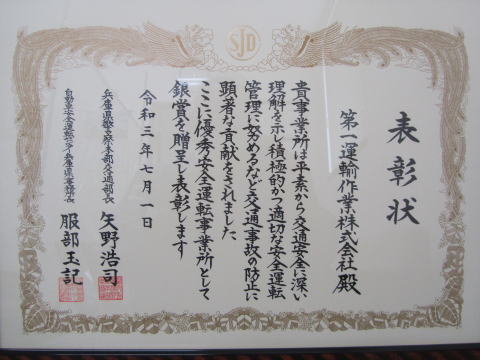 SJD
表彰状
第一運輸作業株式会社殿
貴事業所は平素から交通安全に深い
理解を示し積極的かつ適切な安全運転
管理に努めるなど交通事故の防止に
顕著な貢献をされました
ここに優秀安全運転事業所として
銀賞を贈呈し表彰します
令和三年七月一日
兵庫県警察本部交通部長 矢野浩司
自動車安全運転センター兵庫県事務所長 服部玉記